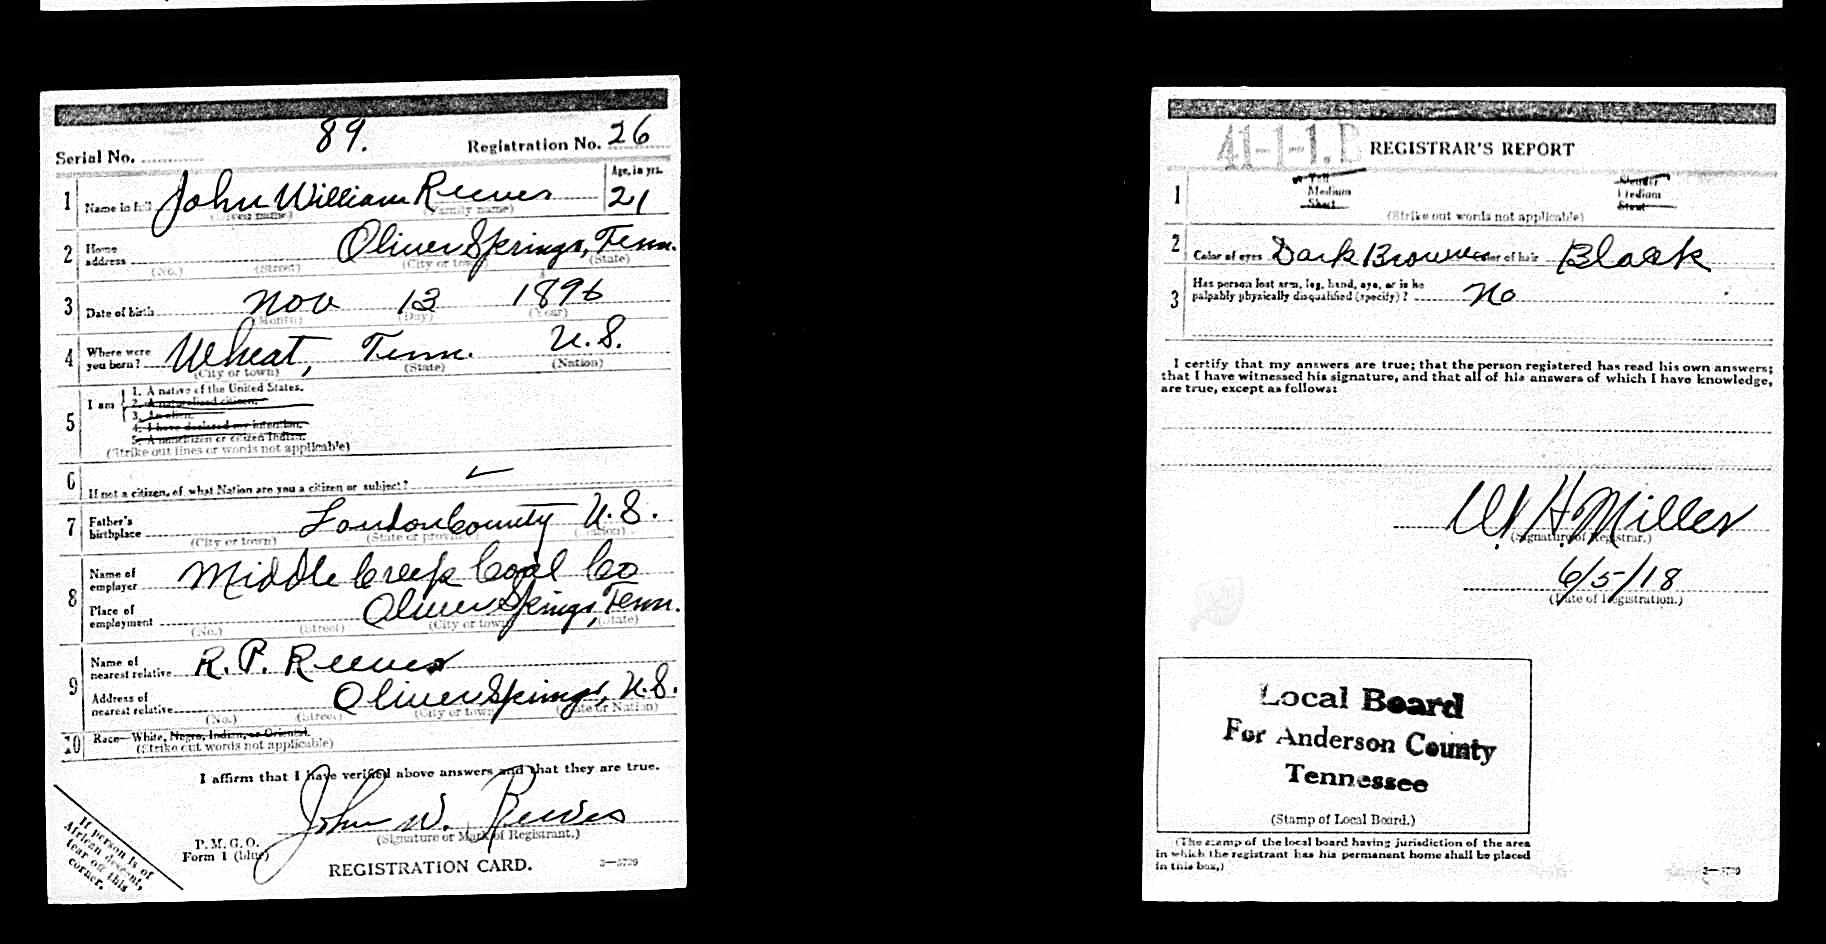 Serial No. 89. Registration No. 26
1 Name in full John William Reeves Age, in yrs. 21
(Given name) (Family name)
2 Home address Oliver Springs, Tenn.
(No.) (Street) (City or town) (State)
3 Date of birth Nov 13 1896
(Month) (Day) (Year)
4 Where were you born? Wheat, Tenn. U.S.
(City or town) (State) (Nation)
5 I am 1. A native of the United States.
2. A naturalized citizen.
3. An alien.
4. I have declared my intention.
5. A noncitizen or citizen Indian.
(Strike out lines or words not applicable)
6 If not a citizen, of what Nation are you a citizen or subject?
7 Father's birthplace Loudon County U.S.
(City or town) (State or province) (Nation)
8 Name of employer Middle Creek Coal Co
Place of employment Oliver Springs, Tenn.
(No.) (Street) (City or town) (State)
9 Name of nearest relative R. P. Reeves
Address of nearest relative Oliver Springs, U.S.
(No.) (Street) (City or town) (State or Nation)
10 Race—White, Negro, Indian, or Oriental.
(Strike out words not applicable)
I affirm that I have verified above answers and that they are true.
John W. Reeves
(Signature or Mark of Registrant.)
P. M. G. O.
Form 1 (blue)
REGISTRATION CARD.
If person is
African descent,
tear off this
corner.
41-1-1. B REGISTRAR'S REPORT
1 Tall Slender
Medium Medium
Short Stout
(Strike out words not applicable)
2 Color of eyes Dark Brown Color of hair Black
3 Has person lost arm, leg, hand, eye, or is he
palpably physically disqualified (specify)? No
I certify that my answers are true; that the person registered has read his own answers;
that I have witnessed his signature, and that all of his answers of which I have knowledge,
are true, except as follows:
W. H. Miller
(Signature of Registrar.)
6/5/18
(Date of Registration.)
Local Board
For Anderson County
Tennessee
(Stamp of Local Board.)
(The stamp of the local board having jurisdiction of the area
in which the registrant has his permanent home shall be placed
in this box.)